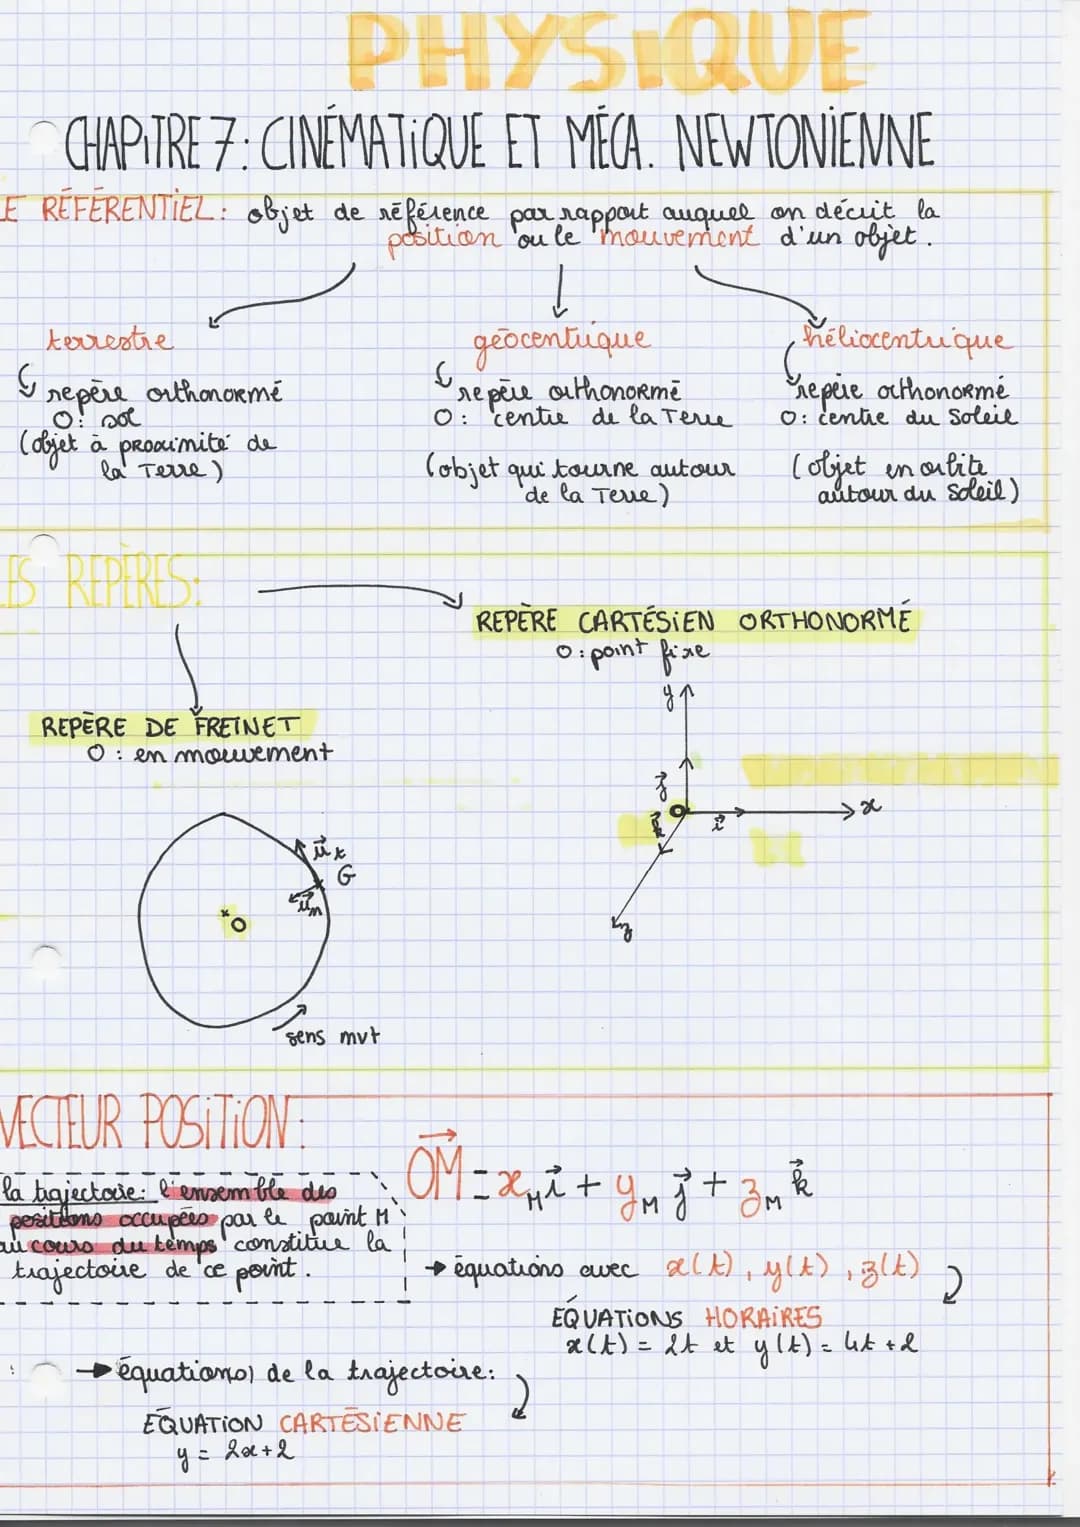 PHYSIQUE
CHAPITRE 7: CINÉMATIQUE ET MÉCA. NEWTONIENNE
LE RÉFÉRENTIEL: objet de référence par rapport auquel on décrit la
position ou le mouvement d'un objet.
terrestre
repère orthonormé
O: sol
(objet à proximité de
la Terre)
géocentrique
repère orthonormé
O: centre de la Terre
(objet qui tourne autour
de la Terre)
héliocentrique
repère orthonormé
O: centre du Soleil
(objet en orbite
autour du Soleil)
LES REPÈRES:
REPÈRE CARTÉSIEN ORTHONORMÉ
O: point fixe
y
j⃗
O
x
k⃗
i⃗
z
REPÈRE DE FREINET
O: en mouvement
u⃗t
G
u⃗n
O
sens mvt
VECTEUR POSITION:
la trajectoire: l'ensemble des
positions occupées par le point M
au cours du temps constitue la
trajectoire de ce point.
OM⃗ = xM i⃗ + yM j⃗ + zM k⃗
→ équations avec x(t), y(t), z(t)
ÉQUATIONS HORAIRES
x(t) = 2t et y(t) = 4t + 2
→ équation(s) de la trajectoire:
ÉQUATION CARTÉSIENNE
y = 2x+2